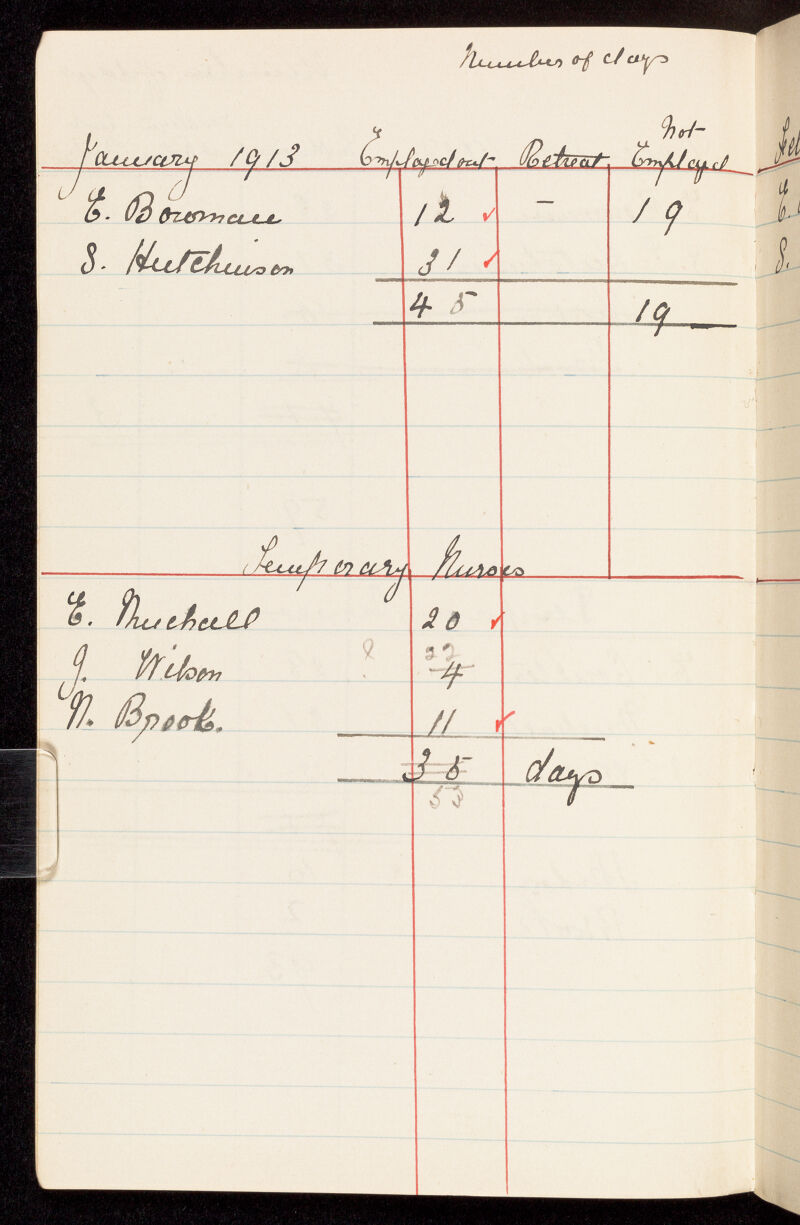 Number of days
Not
January 1913 Employed out Retreat Employed
E. Bowman 12 ✓ – 19
S. Hutchinson 31 ✓
45 19
Temporary Nurses
E. Nuchall 20 ✓
? 22
J. Wilson 4
N. Brook. 11 ✓
35 days
53
E.
S.